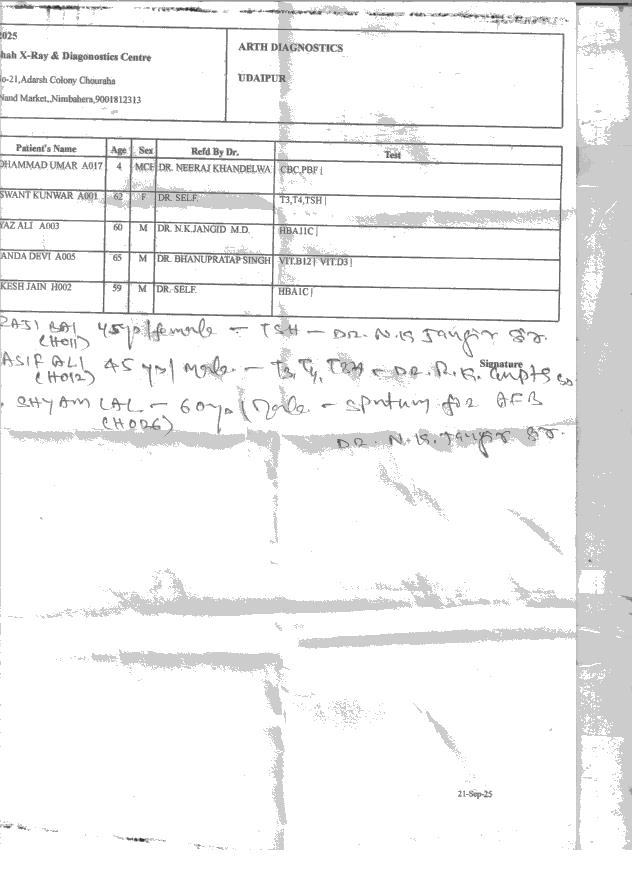 2025
hah X-Ray & Diagonostics Centre
o-21,Adarsh Colony Chouraha
Nand Market,,Nimbahera,9001812313
ARTH DIAGNOSTICS
UDAIPUR
Patient's Name Age Sex Refd By Dr. Test
OHAMMAD UMAR A017 4 MCE DR. NEERAJ KHANDELWA CBC,PBF |
SWANT KUNWAR A001 62 F DR. SELF. T3,T4,TSH |
YAZ ALI A003 60 M DR. N.K.JANGID M.D. HBA1IC |
ANDA DEVI A005 65 M DR. BHANUPRATAP SINGH VIT.B12 | VIT.D3 |
KESH JAIN H002 59 M DR. SELF. HBA1C |
RAJI BAI 45 yo/female - TSH - DR. N.K
(H011)
ASIF ALI 45 yo/Male - T3, T4, TSH - DR. R.K. Gupta
(H012)
Signature
SHYAM LAL - 60 yo/Male - Sputum for AFB
(H026)
DR. N.K.
21-Sep-25